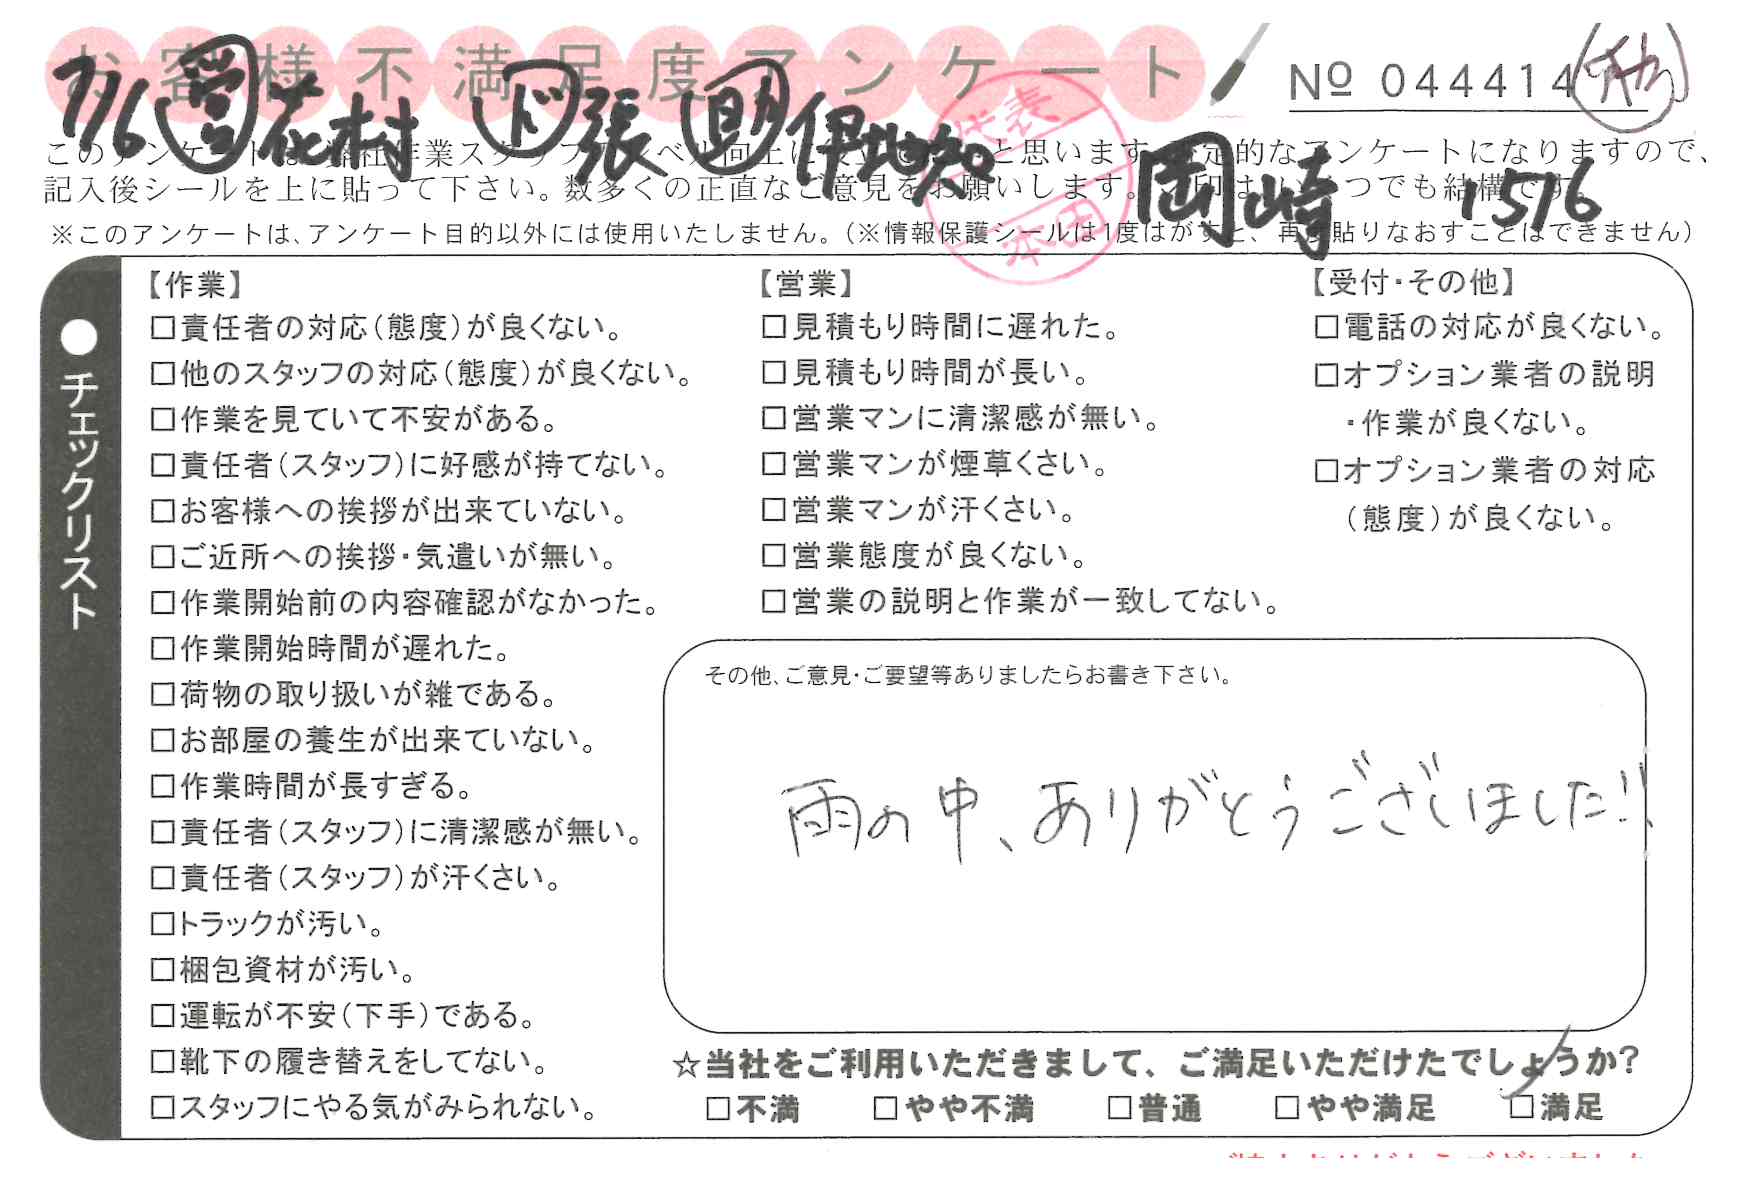 お客様不満足度アンケート
Nº 044414
7/6 営 花村 ド 張 助 伊地知 岡崎 1516
代表
本田
このアンケートは、弊社作業スタッフのレベル向上に役立てたいと思います。否定的なアンケートになりますので、
記入後シールを上に貼って下さい。数多くの正直なご意見をお願いします。
つでも結構です。
※このアンケートは、アンケート目的以外には使用いたしません。(※情報保護シールは1度はがすと、再度貼りなおすことはできません)
●チェックリスト
【作業】
□責任者の対応(態度)が良くない。
□他のスタッフの対応(態度)が良くない。
□作業を見ていて不安がある。
□責任者(スタッフ)に好感が持てない。
□お客様への挨拶が出来ていない。
□ご近所への挨拶・気遣いが無い。
□作業開始前の内容確認がなかった。
□作業開始時間が遅れた。
□荷物の取り扱いが雑である。
□お部屋の養生が出来ていない。
□作業時間が長すぎる。
□責任者(スタッフ)に清潔感が無い。
□責任者(スタッフ)が汗くさい。
□トラックが汚い。
□梱包資材が汚い。
□運転が不安(下手)である。
□靴下の履き替えをしてない。
□スタッフにやる気がみられない。
【営業】
□見積もり時間に遅れた。
□見積もり時間が長い。
□営業マンに清潔感が無い。
□営業マンが煙草くさい。
□営業マンが汗くさい。
□営業態度が良くない。
□営業の説明と作業が一致してない。
【受付・その他】
□電話の対応が良くない。
□オプション業者の説明
・作業が良くない。
□オプション業者の対応
(態度)が良くない。
その他、ご意見・ご要望等ありましたらお書き下さい。
雨の中、ありがとうございました!!
☆当社をご利用いただきまして、ご満足いただけたでしょうか?
□不満 □やや不満 □普通 □やや満足 □満足